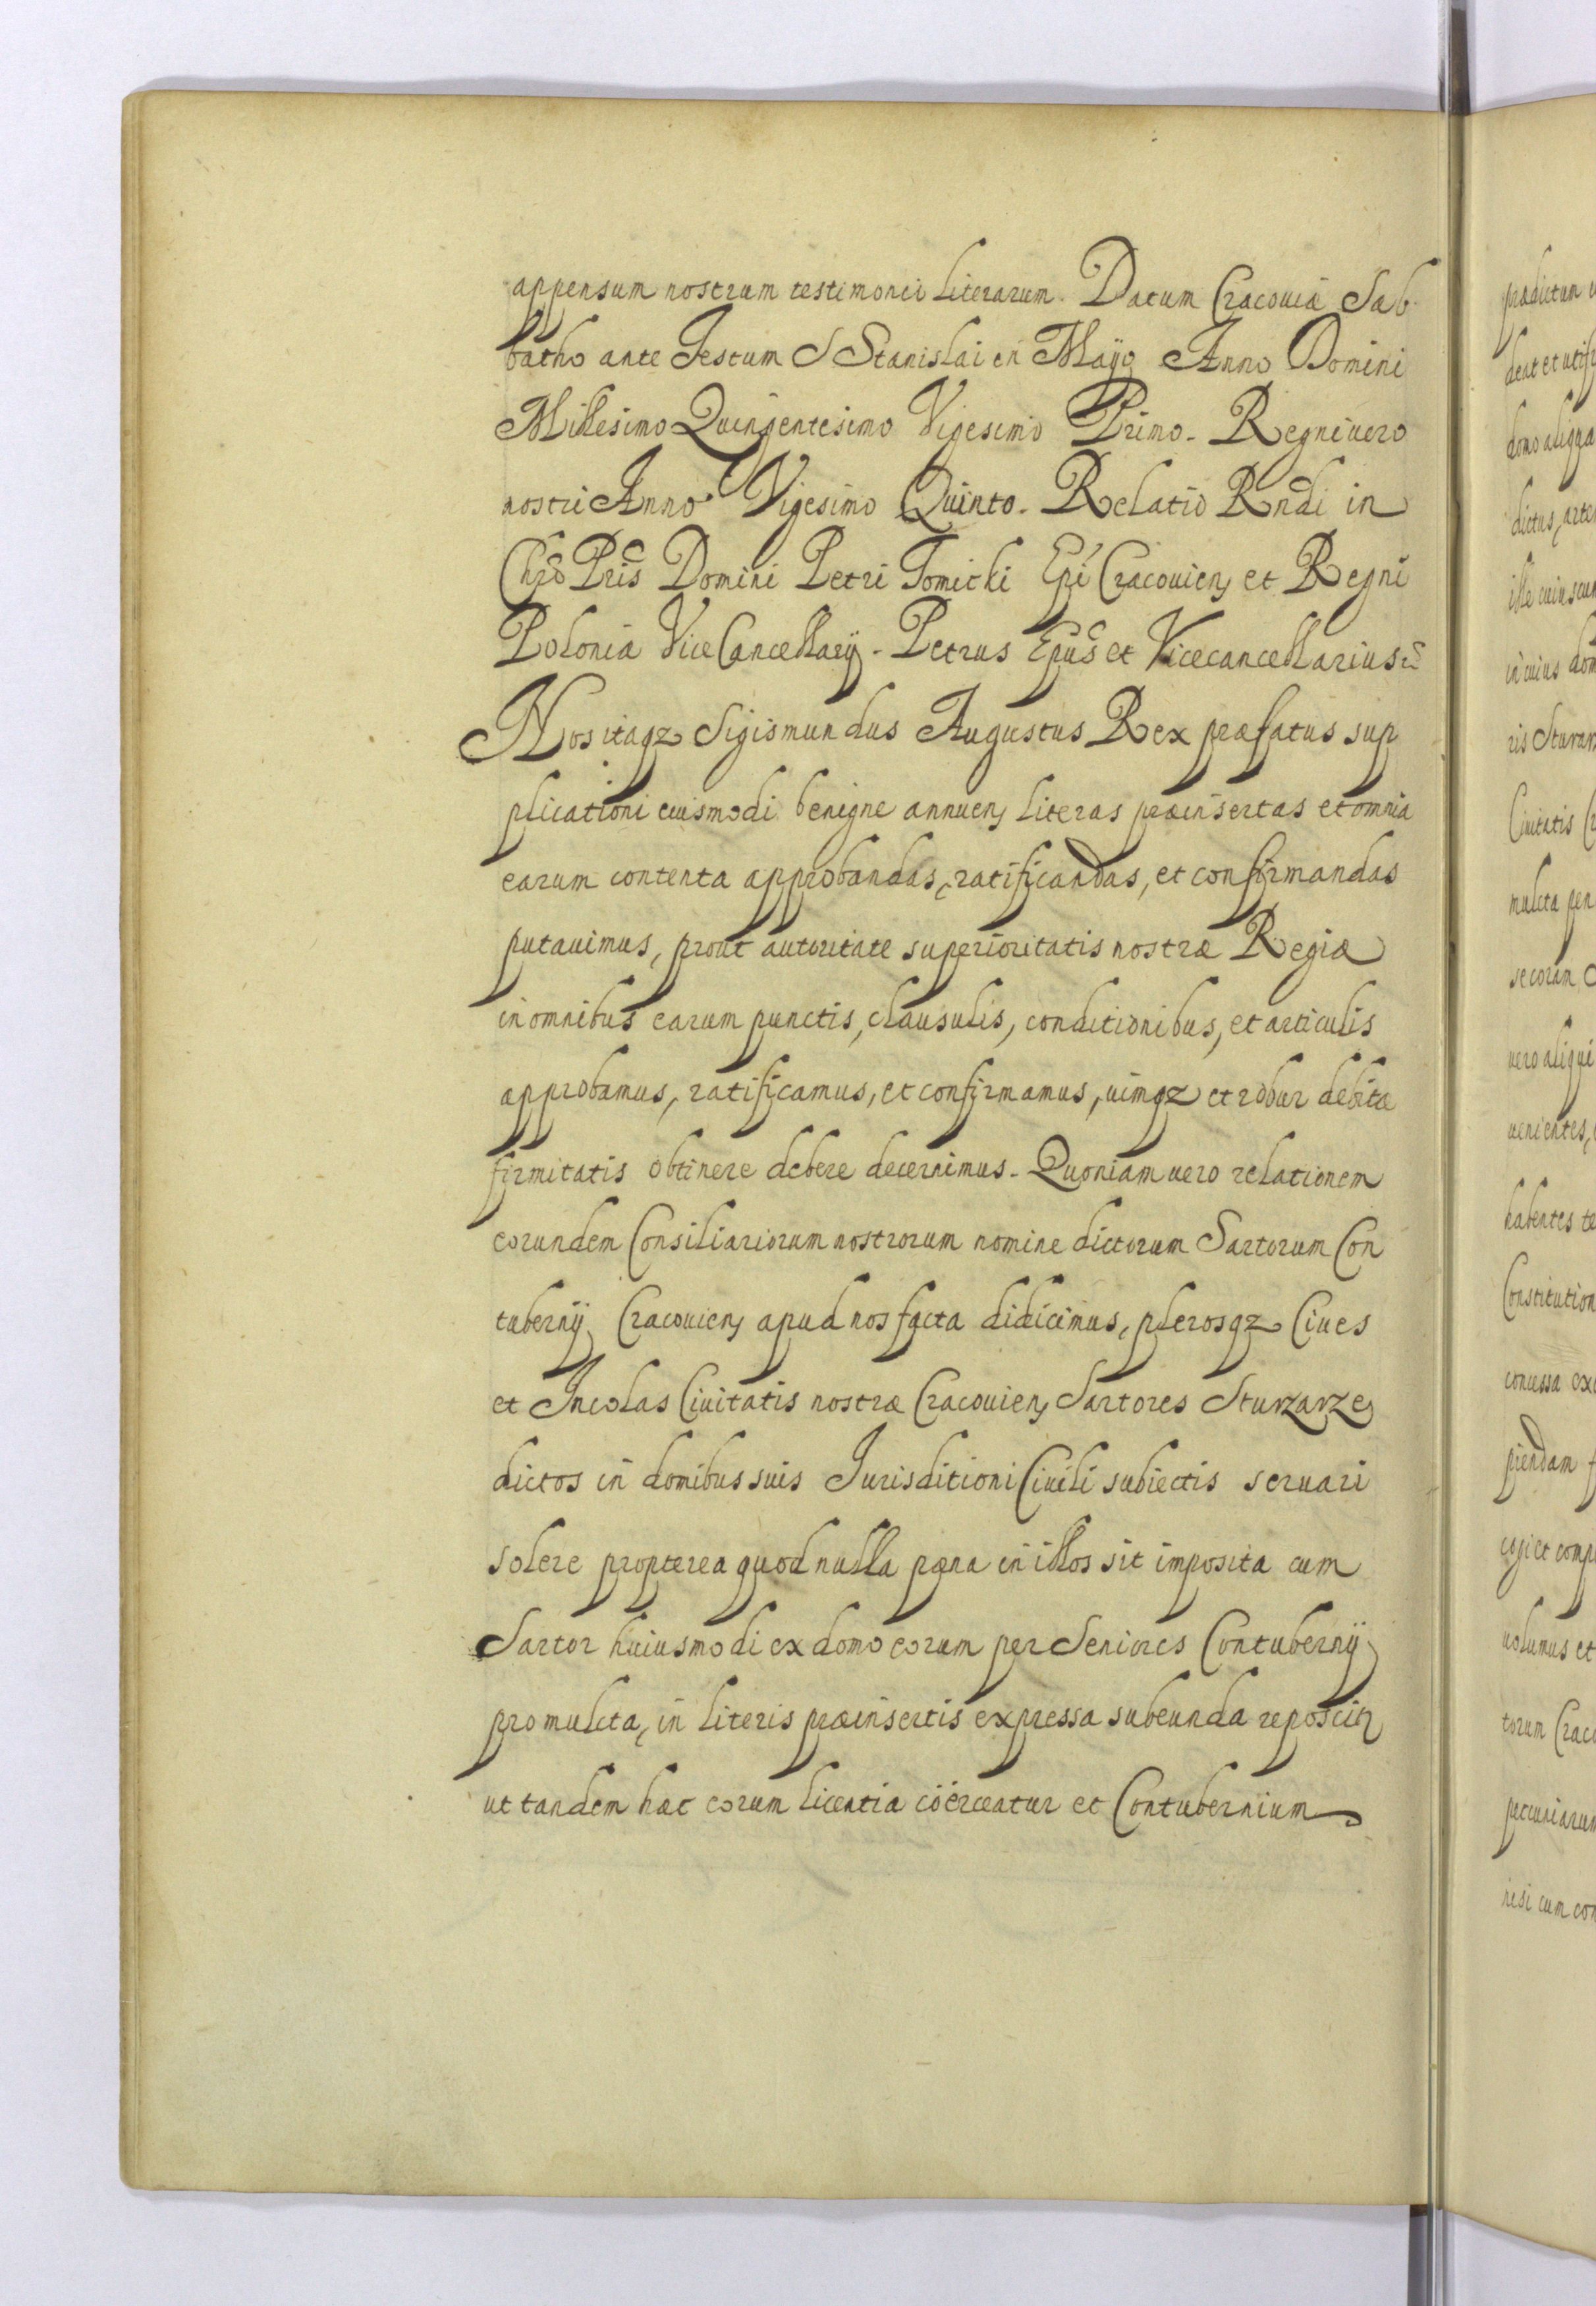 appensum nostrum testimonei literarum. Datum Cracoviæ Sab-
batho ante Festum S Stanislai in Mayo Anno Domini
Millesimo Quingentesimo Vigesimo Primo. Regni uero
nostri Anno Vigesimo Quinto. Relatio Rndi in
Chro Pris Domini Petri Tomicki Epi Cracouien et Regni
Poloniæ ViceCancellarÿ. Petrus Epus et Vicecancellarius
Nos itaqz Sigismundus Augustus Rex præfatus sup
plicationi euismodi benigne annuen literas præinsertas et omnia
earum contenta approbandas, ratificandas, et confirmandas
putauimus, prout autoritate superioritatis nostræ Regiæ
in omnibus earum punctis, clausulis, conditionibus, et articulis
approbamus, ratificamus, et confirmamus, uimqz et robur debitæ
firmitatis obtinere debere decernimus. Quoniam uero relationem
eorundem Consiliariorum nostrorum nomine dictorum Sartorum Con
tubernÿ Cracouien apud nos facta didicimus, plerosqz Ciues
et Incolas Ciuitatis nostræ Cracouien Sartores Sturzarze
dictos in domibus suis Jurisditioni Ciuili subiectis seruari
solere propterea quod nulla pœna in illos sit imposita cum
Sartor huiusmodi ex domo eorum per Seniores Contubernÿ
pro mulcta, in literis præinsertis expressa subeunda reposcitr
ut tandem hæc eorum licentia coërceatur et Contubernium